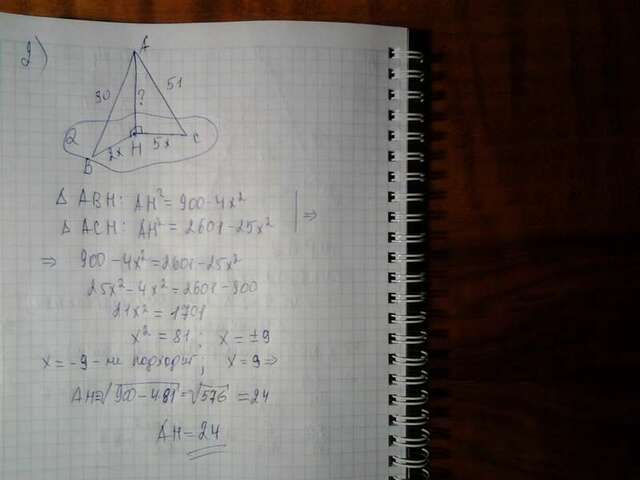 2)
A
30 ? 51
Q
2x H 5x C
B
Δ ABH: AH² = 900 - 4x²
Δ ACH: AH² = 2601 - 25x² | ⇒
⇒ 900 - 4x² = 2601 - 25x²
25x² - 4x² = 2601 - 900
21x² = 1701
x² = 81; x = ±9
x = -9 - не подходит; x = 9 ⇒
AH = √900 - 4·81 = √576 = 24
AH = 24